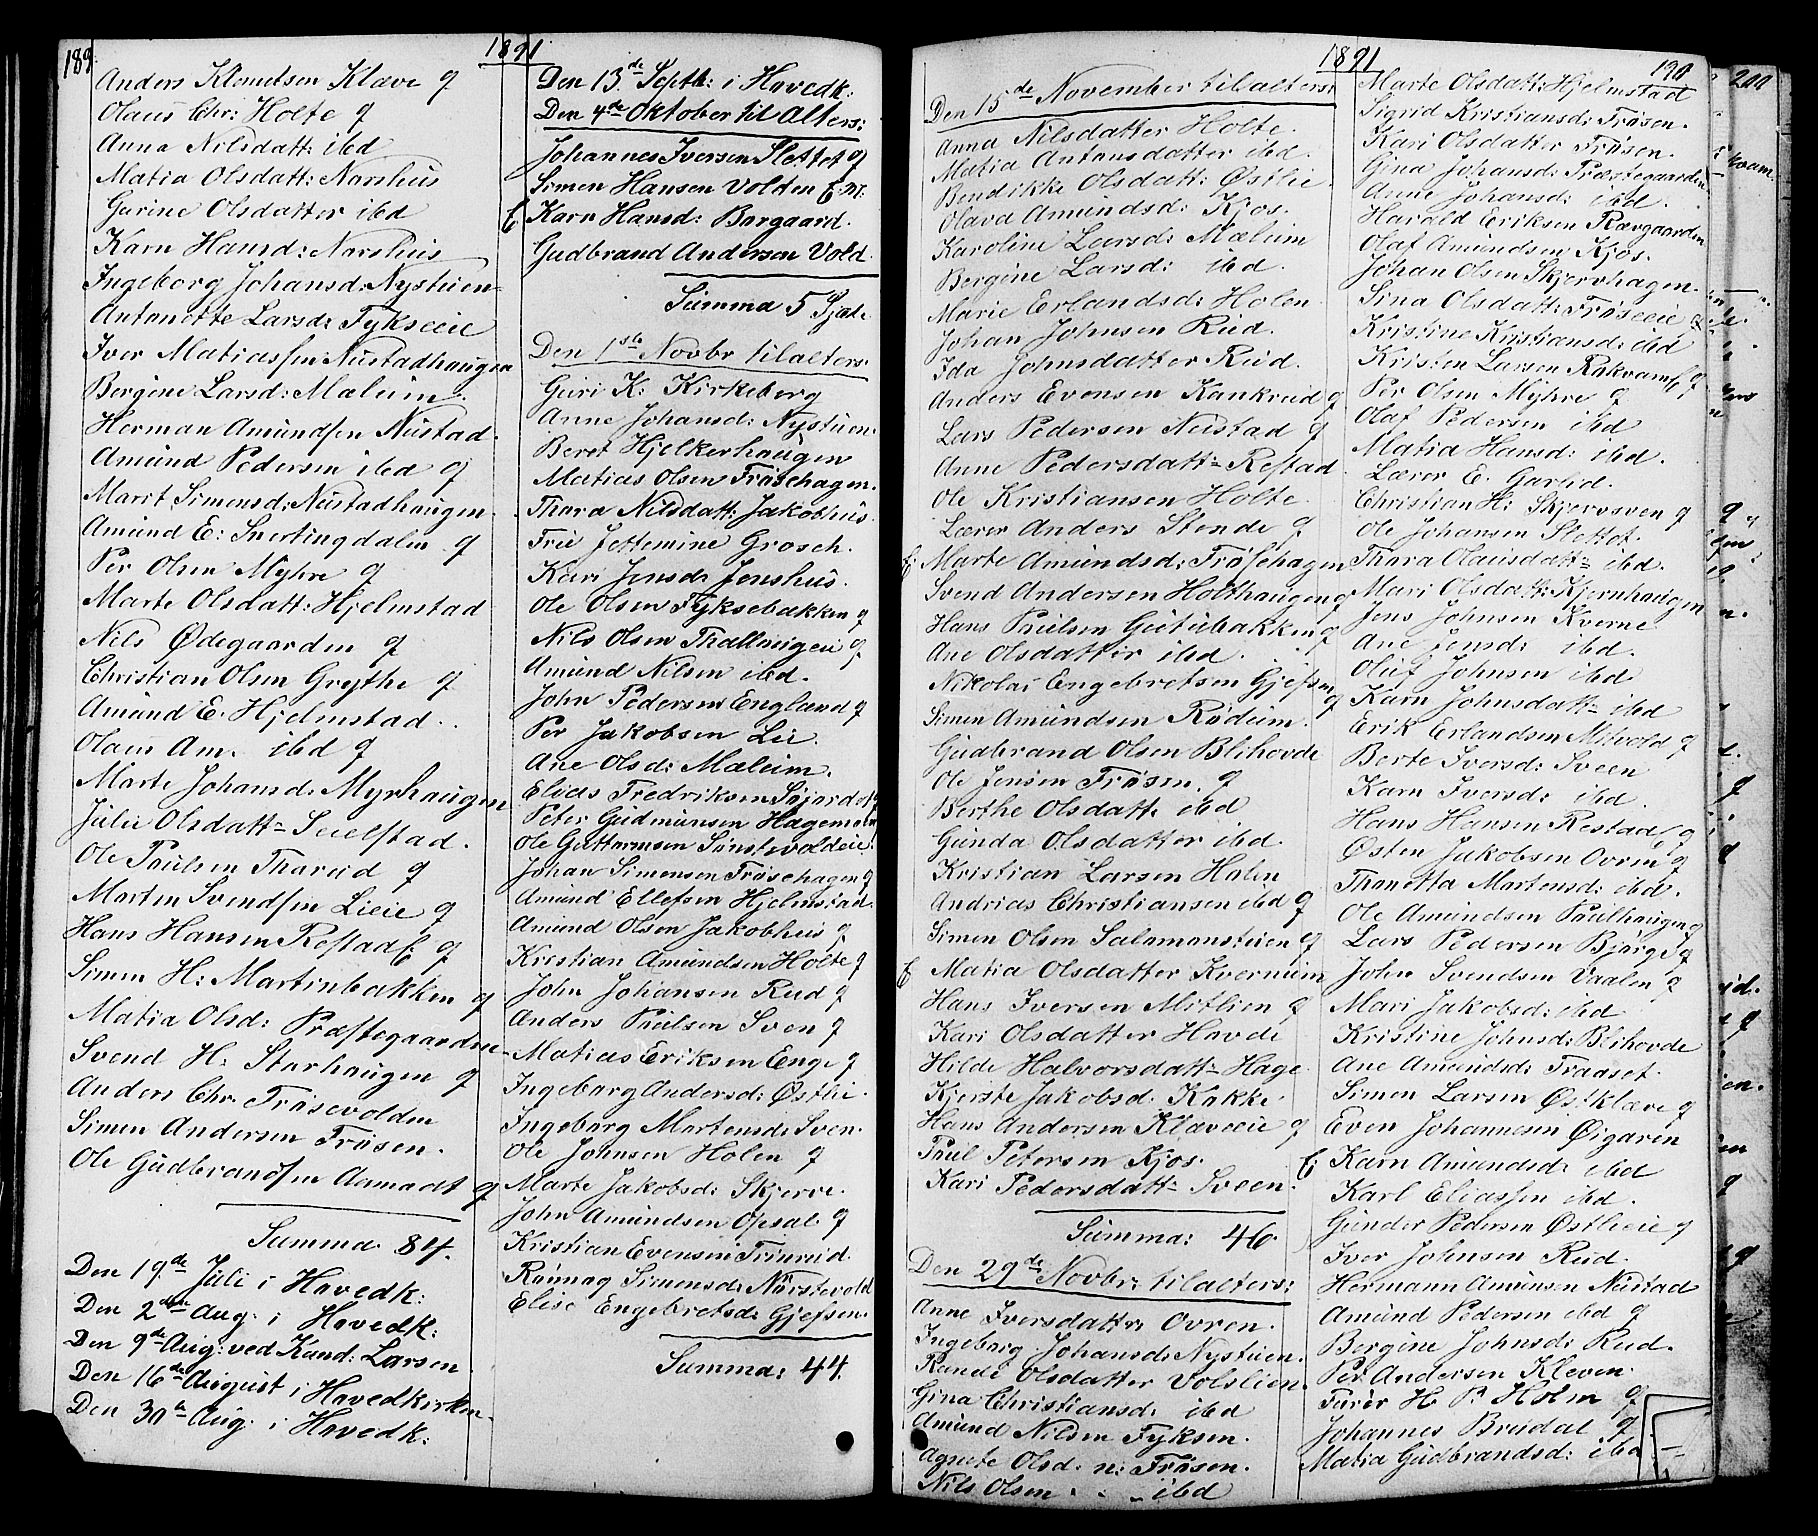 189
1891
Anders Klemetsen Klæve g
Olaus Chr: Holte g
Anna Nilsdatt: ibd
Matia Olsdatt: Narshus
Gurine Olsdatter ibd
Karn Hansd: Narshus
Ingeborg Johansd: Nystuen
Antonette Larsd: Fykseeie
Iver Matiassen Nustadhaugen
Bergine Larsd: Mæleim
Herman Amundsen Nustad
Amund Pedersen ibd g
Marit Simensd: Nustadhaugen
Amund E: Snertingdalen g
Per Olsen Myhre g
Marte Olsdatt: Hjelmstad
Nils Ødegaarden g
Christian Olsen Grythe g
Amund E. Hjelmstad
Olaus Am. ibd g
Marte Johansd: Myrhaugen
Julie Olsdatt= Seielstad
Ole Paulsen Tharud g
Morten Svendsen Lieie g
Hans Hansen Restad g
Simen H: Martinbakken g
Matia Olsd: Præstegaarden
Svend H: Storhaugen g
Anders Chr: Trøsevolden
Simen Andersen Frøsen
Ole Gudbrandsen Aamodt g
Summa 84.
Den 19de Juli i Hovedk:
Den 2den Aug: i Hovedk:
Den 9de Aug: ved Kand: Larsen
Den 16de August i Hovedkirken
Den 30te Aug: i Hovedk:
Den 13de Septb: i Hovedk:
Den 4de Oktober til Alters:
Johannes Iversen Slettet g
Simen Hansen Volden E.M.
Karn Hansd: Borgaard.
Gudbrand Andersen Vold.
Summa 5
Den 1ste Novbr til alters:
Guri K: Kirkeberg
Anne Johansd: Nystuen
Beret Hjelkerhaugen
Matias Olsen Frøsehagen.
Thora Nilsdatt: Jakobhus
Fru Jettemine Grosch.
Kari Jensd: Jenshus.
Ole Olsen Fyksebakken g
Nils Olsen Thallaugeie g
Amund Nilsen ibd.
John Pedersen England g
Per Jakobsen Lie.
Ane Olsd: Mæleim.
Elias Fredriksen Søjordet g
Peter Gudmunsen Hagemoen
Ole Guttormsen Sønstevoldeie
Johan Simensen Frøsehagen g
Amund Ellefsen Hjelmstad
Amund Olsen Jakobhus g
Kristian Amundsen Holte g
John Johansen Rud g
Anders Paulsen Sven g
Matias Eriksen Enge g
Ingeborg Andersd: Østlie
Ingeborg Martensd: Sven
Ole Johnsen Holen g
Marte Jakobsd: Skjerve
John Amundsen Opsal g
Kristian Evensen Finrud
Rønnag Simensd: Nørstevold
Elise Engebretsd: Gjefsen
Summa: 44.
1891
190
Den 15de November til alters:
Anna Nilsdatter Holte
Matia Antonsdatter ibd.
Bendikke Olsdatt: Østlie
Olava Amundsd: Kjos.
Karoline Larsd: Mæleim
Bergine Larsd: ibd.
Marie Erlandsd: Holen
Johan Johnsen Rud.
Ida Johnsdatter Rud.
Anders Evensen Kankrud g
Lars Pedersen Nustad g
Anne Pedersdatt= Restad
Ole Kristiansen Holte
Lærer Anders Stende g
Marte Amundsd: Frøsehagen
Svend Andersen Holthaugen g
Hans Paulsen Gutubakken g
Ane Olsdatter ibd.
Nikolai Engebretsen Gjefsen g
Simen Amundsen Rødeim.
Gudbrand Olsen Blihovde
Ole Jensen Frøsen. g
Berthe Olsdatt: ibd
Gunda Olsdatter ibd.
Kristian Larsen Holen
Andrias Christiansen ibd g
Simen Olsen Salamonstuen g
Matia Olsdatter Kvernum
Hans Iversen Mitlien g
Kari Olsdatter Hovde
Hilde Halvorsdatt= Hage
Kjerste Jakobsd: Kokke
Hans Andersen Klæveeie g
Paul Petersen Kjos.
Kari Pedersdatt= Sveen
Summa: 46.
Den 29de Novbr: til alters:
Anne Iversdatter Ovren.
Ingeborg Johansd: Nystuen.
Rande Olsdatter Volslien.
Gina Christiansd: ibd
Amund Nilsen Fyksen.
Agnete Olsd: n: Frøsen.
Nils Olsen ibd
Marte Olsdatt: Hjelmstad
Sigrid Kristiansd: Frøsen.
Kari Olsdatter Frøsen.
Gina Johansd: Præstegaarden
Anne Johansd: ibd.
Harald Eriksen Rævgaarden
Olaf Amundsen Kjos.
Johan Olsen Skjervhagen
Sina Olsdatt: Frøseeie
Kristine Kristiansd: ibd
Kristen Larsen Røkvam g
Per Olsen Myhre g
Olaf Pedersen ibd
Matia Hansd: ibd.
Lærer E. Garlid.
Christian H: Skjervsven g
Ole Johansen Slettet.
Thora Olausdatt= ibd.
Mari Olsdatt: Kjernhaugen
Jens Johnsen Kverne
Ane Jensd: ibd.
Oluf Johnsen ibd
Karn Johnsdatt= ibd
Erik Erlandsen Mitvold g
Berte Iversd: Sveen
Karn Iversd: ibd.
Hans Hansen Restad g
Østen Jakobsen Ovren g
Thonetta Martensd: ibd.
Ole Amundsen Paulhaugen g
Lars Pedersen Bjørge g
John Svendsen Vaalen g
Mari Jakobsd: ibd
Kristine Johnsd: Blihovde
Ane Amundsd: Fraaset.
Simen Larsen Østklæve g
Even Johannesen Øigaren
Karn Amundsd: ibd
Karl Eliassen ibd.
Gunder Pedersen Østlieie g
Iver Johnsen Rud
Hermann Amunsen Nustad
Amund Pedersen ibd g
Bergine Johnsd: Rud.
Per Andersen Kleven.
Furer H. P. Holm g
Johannes Brudal g
Matia Gudbrandsd: ibd
200